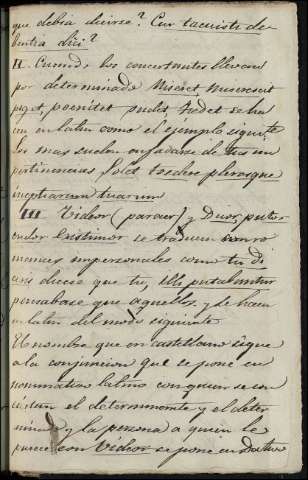 que debia decirse? Cur tacuisti de
bentia dici?
II. Cuando los concertantes llevan
por determinado Miseret, Miserescit
piget, poenitet pudet, tedet se ha
cen en latin como el ejemplo siguite
los mas suelen enfadarse de tus im
pertinencias Solet taedere plerosque
ineptiarum tuarum
III Videor (parecer) y Duor, putor
credor Existimor se traducen con ro
mances impersonales como tu di
cese que tu, illi putabantur
pensabase que aquellos y se hacen
en latin del modo siguiente
El nombre que en castellano sigue
a la conjuncion que se pone en
nominativo latino con quien se con
ciertan el determinante y el deter
minado y la persona a quien le
parece con Videor se pone en dativo